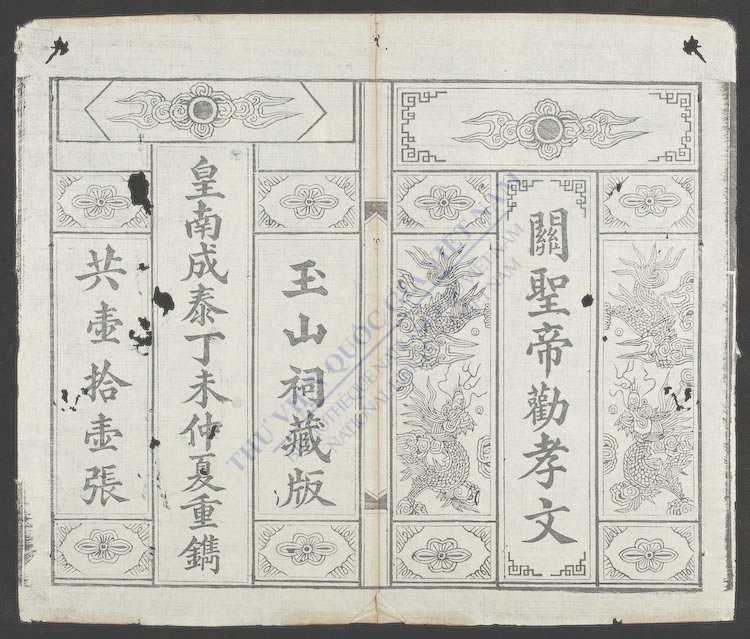 關聖帝勸孝文
玉山祠藏版
皇南成泰丁未仲夏重鐫
共壺拾壺張
THƯ VIỆN QUỐC GIA VIỆT NAM
BIBLIOTHÈQUE NATIONALE DU VIETNAM
NATIONAL LIBRARY OF VIETNAM